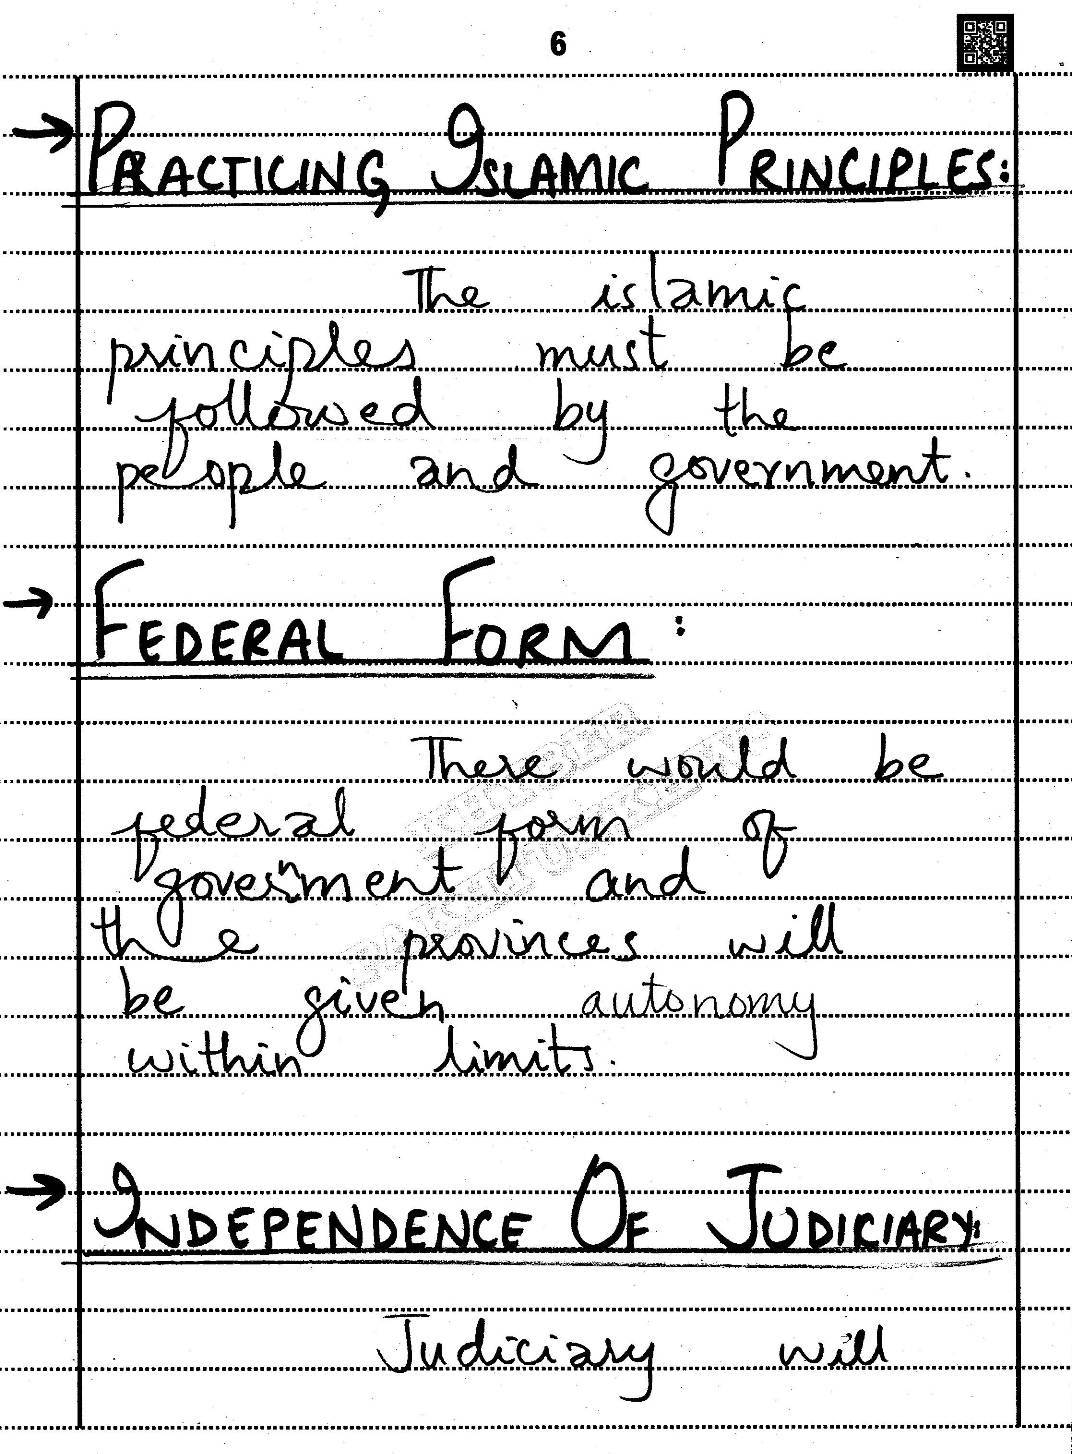 6
→ PRACTICING ISLAMIC PRINCIPLES:
The islamic
principles must be
followed by the
people and government.
→ FEDERAL FORM :
There would be
federal form of
government and
the provinces will
be given autonomy
within limits.
→ INDEPENDENCE OF JUDICIARY:
Judiciary will